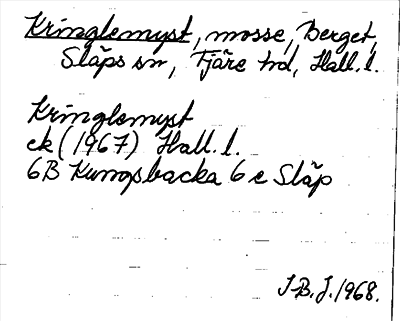 Kringlemyst, mosse, Berget,
Släps sn, Fjäre hd, Hall. l.
Kringlemyst
ek (1967) Hall. l.
6B Kungsbacka 6 e Släp
I B. J. 1968.